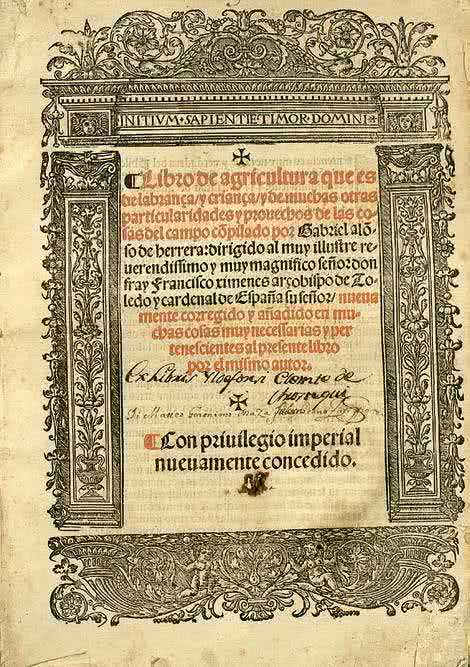 INITIVM · SAPIENTIE · TIMOR · DOMINI ·
Libro de agricultura que es
de labrança / y criança / y de muchas otras
particularidades y prouechos de las co
sas del campo cõpilado por Gabriel alõ
so de herrera: dirigido al muy illustre re
uerendissimo y muy magnifico señor don
fray Francisco ximenes arçobispo de To
ledo y cardenal de España su señor / nueua
mente corregido y añadido en mu
chas cosas muy necessarias y per
tenescientes al presente libro
por el mismo autor.
Ex Libris Clemte de
Con priuilegio imperial
nueuamente concedido.